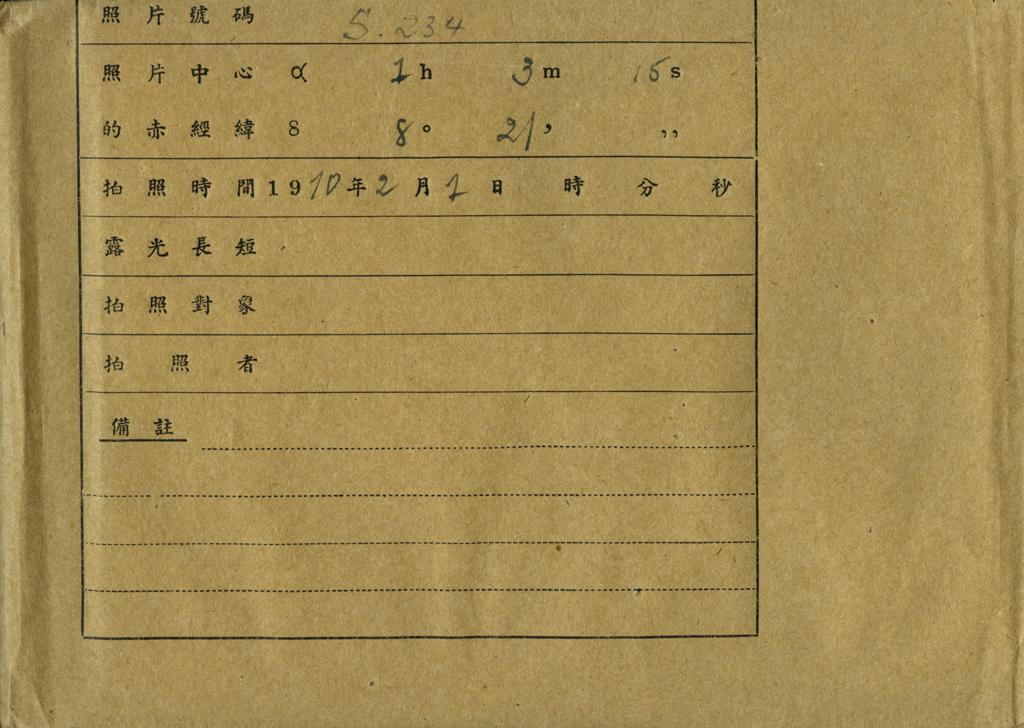 照片號碼 S.234
照片中心 α 1h 3m 15s
的赤經緯 δ 8° 21' ''
拍照時間 1910年2月1日 時 分 秒
露光長短
拍照對象
拍照者
備註